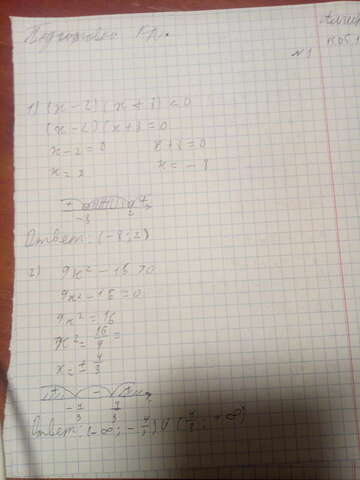 Подготовка к К.р.
N 1
1) (x - 2)(x + 8) < 0
(x - 2)(x + 8 = 0
x - 2 = 0 x + 8 = 0
x = 2 x = - 8
+ - +
-8 2
Ответ: (-8; 2)
2) 9x² - 16 > 0
9x² - 16 = 0
9x² = 16
x² = 16/9 =
x = ± 4/3
+ - +
- 4/3 4/3
Ответ: (-∞; - 4/3) U (4/3; +∞)